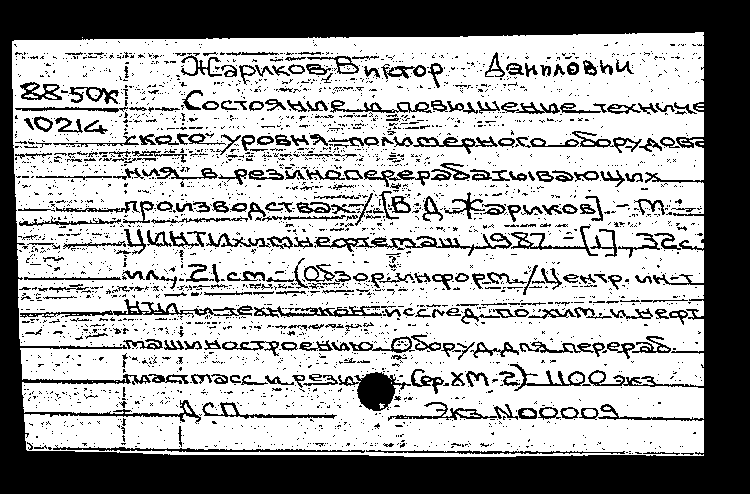 Жариков, Виктор Данилович
88-50к
Состояние и повышение техниче
10214
ского уровня полимерного оборудова
ния в резиноперерабатывающих
производствах / [В.Д. Жариков]. - М.:
ЦИНТИхимнефтемаш, 1987. - [1], 32с.:
ил.; 21 см. - (Обзор. информ. / Центр. ин-т
НТИ и техн.-экон. исслед. по хим. и нефт.
машиностроению. Оборуд. для перераб.
пластмасс и резины; (сер. ХМ-2). - 1100 экз.
ДСП Экз. N00009